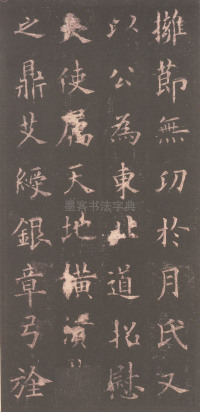 擁節無功於月氏又
以公為東北道招慰
大使属天地橫潰
之鼎艾綬銀章弓旌
墨客书法字典